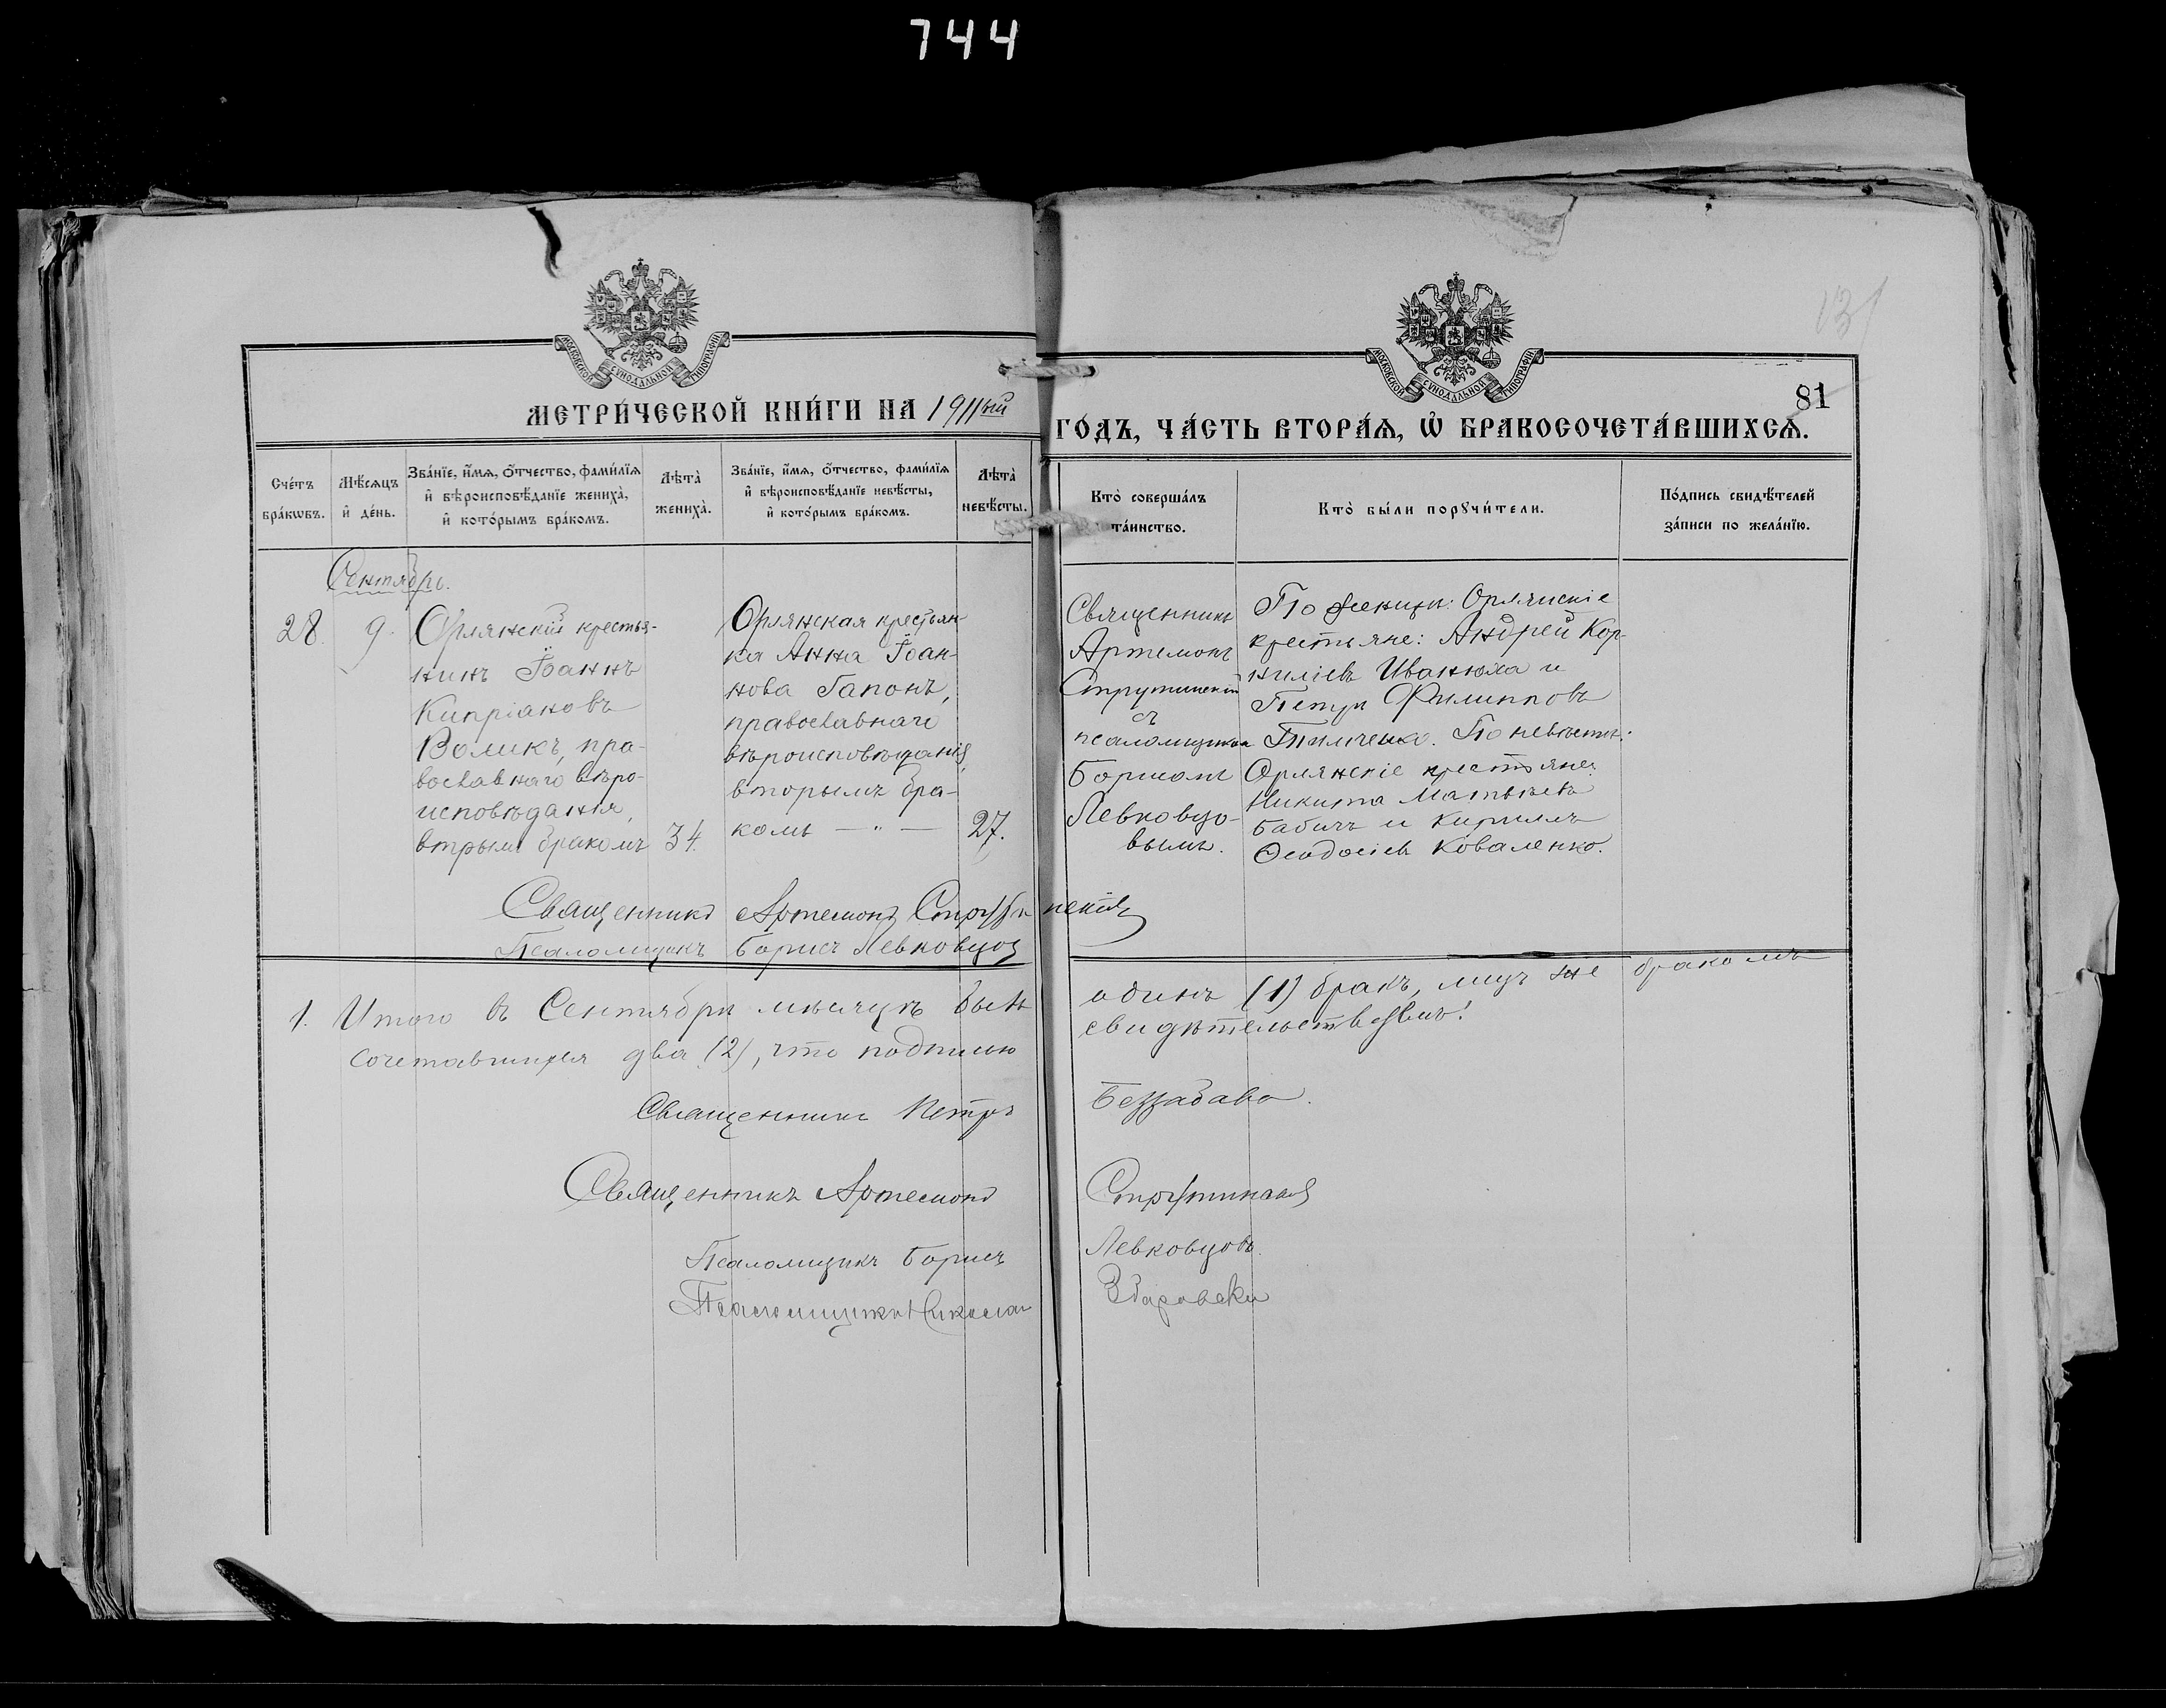 744
131
81
МОСКОВСКОЙ СѴНОДАЛЬНОЙ ТИПОГРАФІИ
МОСКОВСКОЙ СѴНОДАЛЬНОЙ ТИПОГРАФІИ
МЕТРИ́ЧЕСКОЙ КНИ́ГИ НА 1911ый
ГО́ДЪ, ЧА́СТЬ ВТОРА́Ѧ, Ѽ БРАКОСОЧЕТА́ВШИХСѦ.
Сче́тъ бра́кѡвъ.
Мѣ́сѧцъ и҆ де́нь.
Зва́нїе, и҆́мѧ, ѻ҆́тчество, фами́лїѧ
и҆ вѣроисповѣ́данїе жениха̀,
и҆ кото́рымъ бра́комъ.
Лѣта̀ жениха̀.
Зва́нїе, и҆́мѧ, ѻ҆́тчество, фами́лїѧ
и҆ вѣроисповѣ́данїе невѣ́сты,
и҆ кото́рымъ бра́комъ.
Лѣта̀ невѣ́сты.
Кто̀ соверша́лъ
та́инство.
Кто̀ бы́ли порꙋчи́тели.
По́дпись свидѣ́телей
за́писи по жела́нїю.
Сентябрь.
28. 9.
Орлянскій крестья-
нинъ Іоаннъ
Кипріановъ
Воликъ, пра-
вославнаго вѣро-
исповѣданія,
вторым бракомъ
34.
Орлянская крестьян-
ка Анна Іоан-
нова Гапонъ,
православнаго
вѣроисповѣданія,
вторымъ бра-
комъ — " —
27.
Священникъ
Артемонъ
Струтинскій
съ
псаломщикомъ
Борисомъ
Левковцо-
вымъ.
По женихѣ: Орлянскіе
крестьяне: Андрей Кор-
ниліевъ Иванюха и
Петръ Филипповъ
Тимченко. По невѣстѣ:
Орлянскіе крестьяне:
Никита Матвѣевъ
Бабичъ и Кириллъ
Ѳеодосіевъ Коваленко.
Священникъ Артемонъ Струтинскій
Псаломщикъ Борисъ Левковцовъ
1. Итого въ Сентябрѣ мѣсяцѣ былъ одинъ (1) бракъ, лицъ же бракомъ
сочетавшихся два (2), что подписью свидѣтельствуемъ!
Священникъ Петръ Беззабава.
Священникъ Артемонъ Струтинскій
Псаломщикъ Борисъ Левковцовъ.
Псаломщикъ Николай